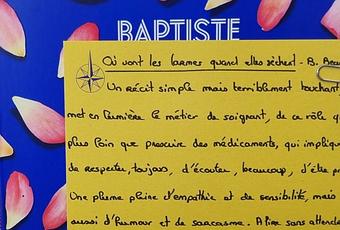 BAPTISTE
Où vont les larmes quand elles sèchent - B. Beau
Un récit simple mais terriblement touchant,
met en lumière le métier de soignant, de ce rôle q
plus loin que prescrire des médicaments, qui implique
de respecter, toujours, d'écouter, beaucoup, d'être pr
Une plume pleine d'empathie et de sensibilité, mais
aussi d'humour et de sarcasme. A lire sans attendre